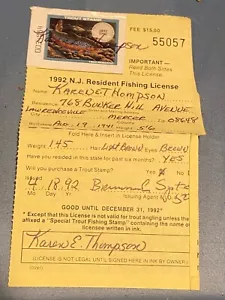 FEE $15.00
55057
IMPORTANT
Read Both Sides
This License.
Thompson
1992 N.J. Resident Fishing License
Name Karen E Thompson
Residence 768 Bunker Hill Avenue
Lawrenceville Mercer 08648
Fold Here and Insert in License Holder
Weight 145 Hair Light Brown Eyes Brown
Have you resided in this state for past six months? Yes
Will you purchase a Trout Stamp?
4 18 92
Mo. Day Yr. Issuing Agent No.
GOOD UNTIL DECEMBER 31, 1992*
* Except that this License is not valid for trout angling unless the
affixed a "Special Trout Fishing Stamp" containing the name of
licensee written in ink.
Karen E. Thompson
(LICENSE IS NOT LEGAL UNTIL SIGNED HERE IN INK BY OWNER)